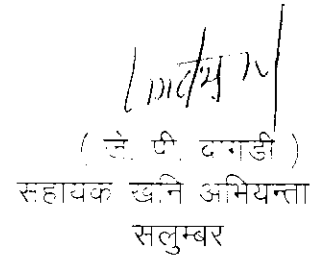 ( जे. पी. दागडी )
सहायक खनि अभियन्ता
सलुम्बर